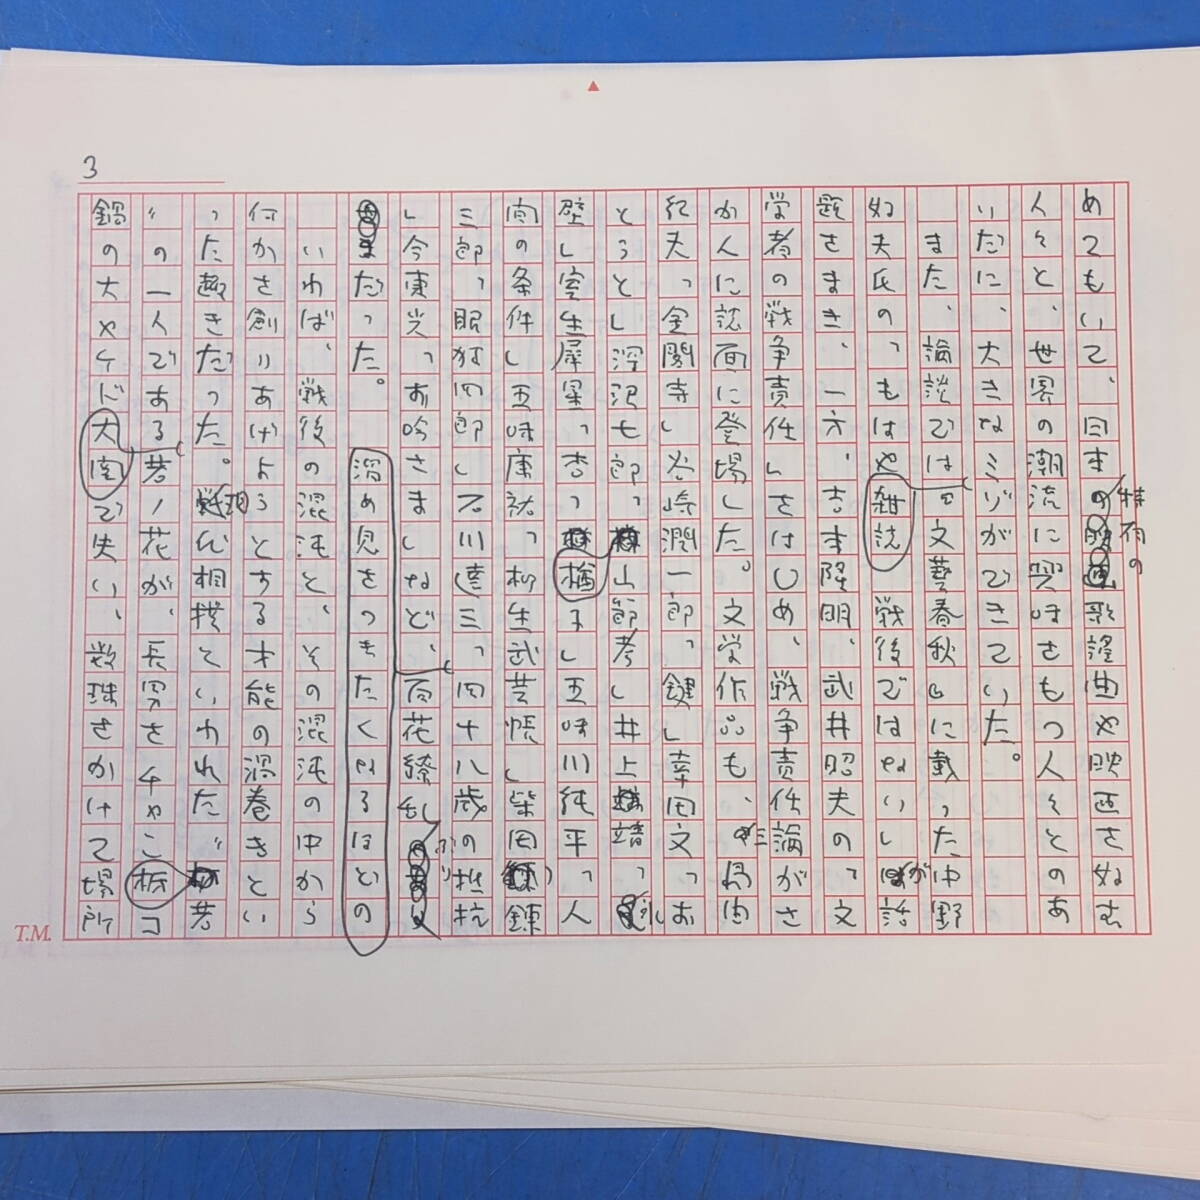 3
めてもいて、日本特有の歌謡曲や映画を好む
人々と、世界の潮流に興味をもつ人々とのあ
いだに、大きなミゾができていた。
また、論談では『文藝春秋』に載った中野
好夫氏の「もはや戦後ではない」が話
雑誌
題をまき、一方、吉本隆明、武井昭夫の「文
学者の戦争責任」をはじめ、戦争責任論がさ
かんに誌面に登場した。文学作品も、三島由
紀夫「金閣寺」谷崎潤一郎「鍵」幸田文「お
とうと」深沢七郎「楢山節考」井上靖「氷
壁」室生犀星「杏っ子」五味川純平「人
間の条件」五味康祐「柳生武芸帳」柴田錬
三郎「眠狂四郎」石川達三「四十八歳の抵抗
」今東光「お吟さま」など、百花繚乱ぶり
だった。
溜め息をつきたくなるほどの
いわば、戦後の混沌と、その混沌の中から
何かを創りあげようとする才能の渦巻きとい
った趣きだった。現代相撲といわれた〝栃若
〟の一人である若ノ花が、長男をチャンコ
鍋の大ヤケドで失い、数珠をかけて場所
大関
T.M.